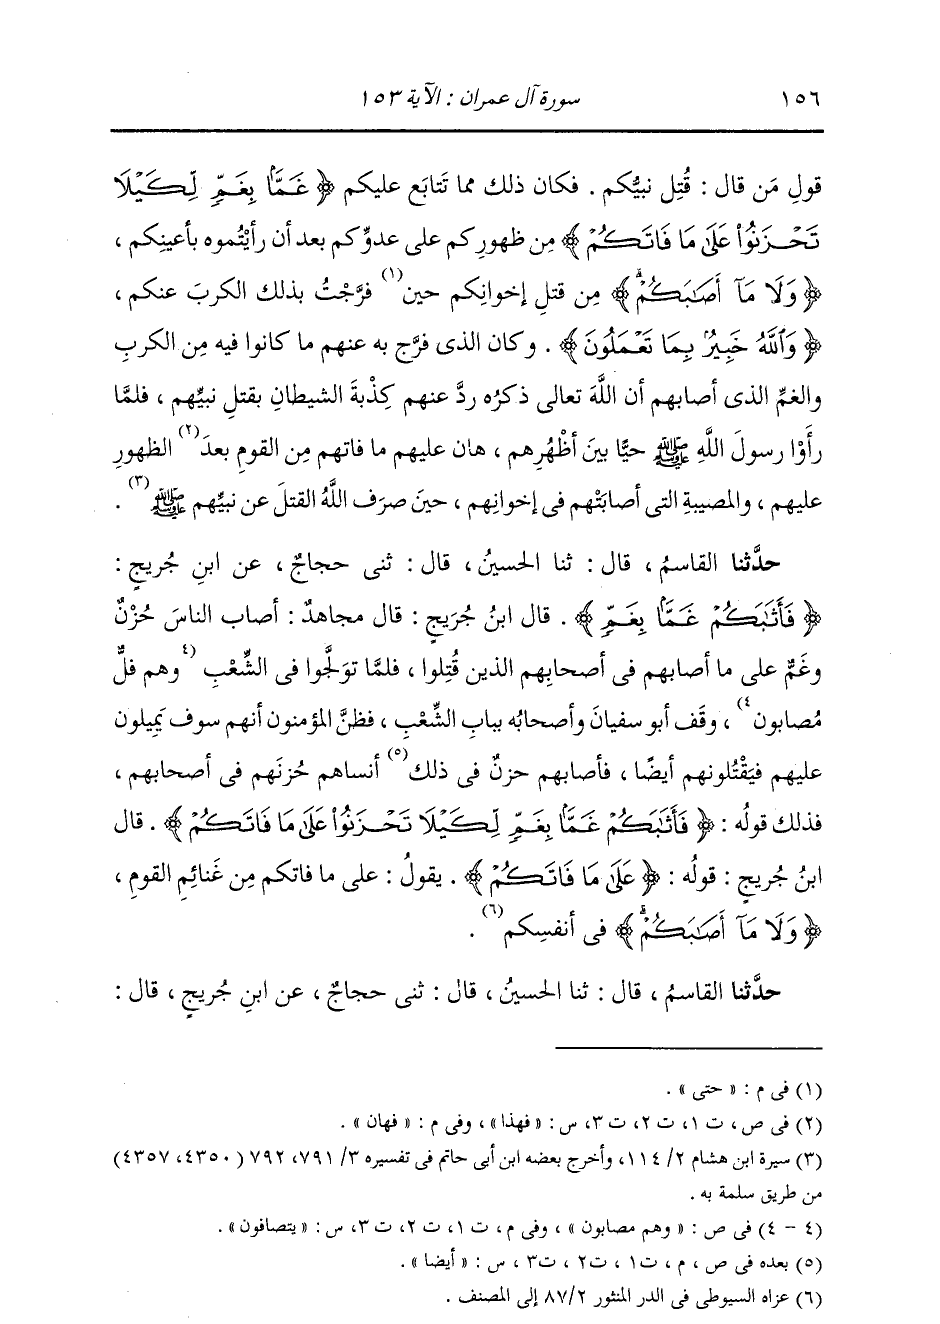 ١٥٦ سورة آل عمران : الآية ١٥٣
قولِ مَن قال : قُتِل نبيُّكم . فكان ذلك مما تَتابَع عليكم ﴿ غَمًّا بِغَمٍّ لِّكَيْلَا
تَحْزَنُوا۟ عَلَىٰ مَا فَاتَكُمْ ﴾ مِن ظهورِكم على عدوِّكم بعد أن رأيْتُموه بأعينِكم ،
﴿ وَلَا مَآ أَصَـٰبَكُمْ ۗ ﴾ مِن قتلِ إخوانِكم حين(١) فرَّجْتُ بذلك الكربَ عنكم ،
﴿ وَٱللَّهُ خَبِيرٌۢ بِمَا تَعْمَلُونَ ﴾ . وكان الذى فرَّج به عنهم ما كانوا فيه مِن الكربِ
والغمِّ الذى أصابهم أن اللَّهَ تعالى ذكرُه ردَّ عنهم كِذْبةَ الشيطانِ بقتلِ نبيِّهم ، فلمَّا
رأَوْا رسولَ اللَّهِ ﷺ حيًّا بينَ أظْهُرِهم ، هان عليهم ما فاتهم مِن القومِ بعدَ(٢) الظهورِ
عليهم ، والمصيبةِ التى أصابَتْهم فى إخوانِهم ، حينَ صرَف اللَّهُ القتلَ عن نبيِّهم ﷺ(٣) .
حدَّثنا القاسمُ ، قال : ثنا الحسينُ ، قال : ثنى حجاجٌ ، عن ابنِ جُريجٍ :
﴿ فَأَثَـٰبَكُمْ غَمًّۢا بِغَمٍّ ﴾ . قال ابنُ جُرَيجٍ : قال مجاهدٌ : أصاب الناسَ حُزْنٌ
وغَمٌّ على ما أصابهم فى أصحابِهم الذين قُتِلوا ، فلمَّا توَلَّجوا فى الشِّعْبِ (٤وهم فلٌّ
مُصابون٤) ، وقَف أبو سفيانَ وأصحابُه ببابِ الشِّعْبِ ، فظنَّ المؤمنون أنهم سوف يَمِيلون
عليهم فيَقْتُلونهم أيضًا ، فأصابهم حزنٌ فى ذلك(٥) أنساهم حُزنَهم فى أصحابهم ،
فذلك قولُه : ﴿ فَأَثَـٰبَكُمْ غَمًّۢا بِغَمٍّ لِّكَيْلَا تَحْزَنُوا۟ عَلَىٰ مَا فَاتَكُمْ ﴾ . قال
ابنُ جُريجٍ : قولُه : ﴿ عَلَىٰ مَا فَاتَكُمْ ﴾ . يقولُ : على ما فاتكم مِن غَنائِمِ القومِ ،
﴿ وَلَا مَآ أَصَـٰبَكُمْ ۗ ﴾ فى أنفسِكم(٦) .
حدَّثنا القاسمُ ، قال : ثنا الحسينُ ، قال : ثنى حجاجٌ ، عن ابنِ جُريجٍ ، قال :
(١) فى م : « حتى » .
(٢) فى ص، ت ١، ت ٢، ت ٣، س : « فهذا »، وفى م : « فهان » .
(٣) سيرة ابن هشام ٢/ ١١٤، وأخرج بعضه ابن أبى حاتم فى تفسيره ٣/ ٧٩١، ٧٩٢ ( ٤٣٥٠، ٤٣٥٧)
من طريق سلمة به .
(٤ - ٤) فى ص : « وهم مصابون » ، وفى م، ت ١، ت ٢، ت ٣، س : « يتصافون » .
(٥) بعده فى ص ، م ، ت١ ، ت٢ ، ت٣ ، س : « أيضا » .
(٦) عزاه السيوطى فى الدر المنثور ٢/ ٨٧ إلى المصنف .